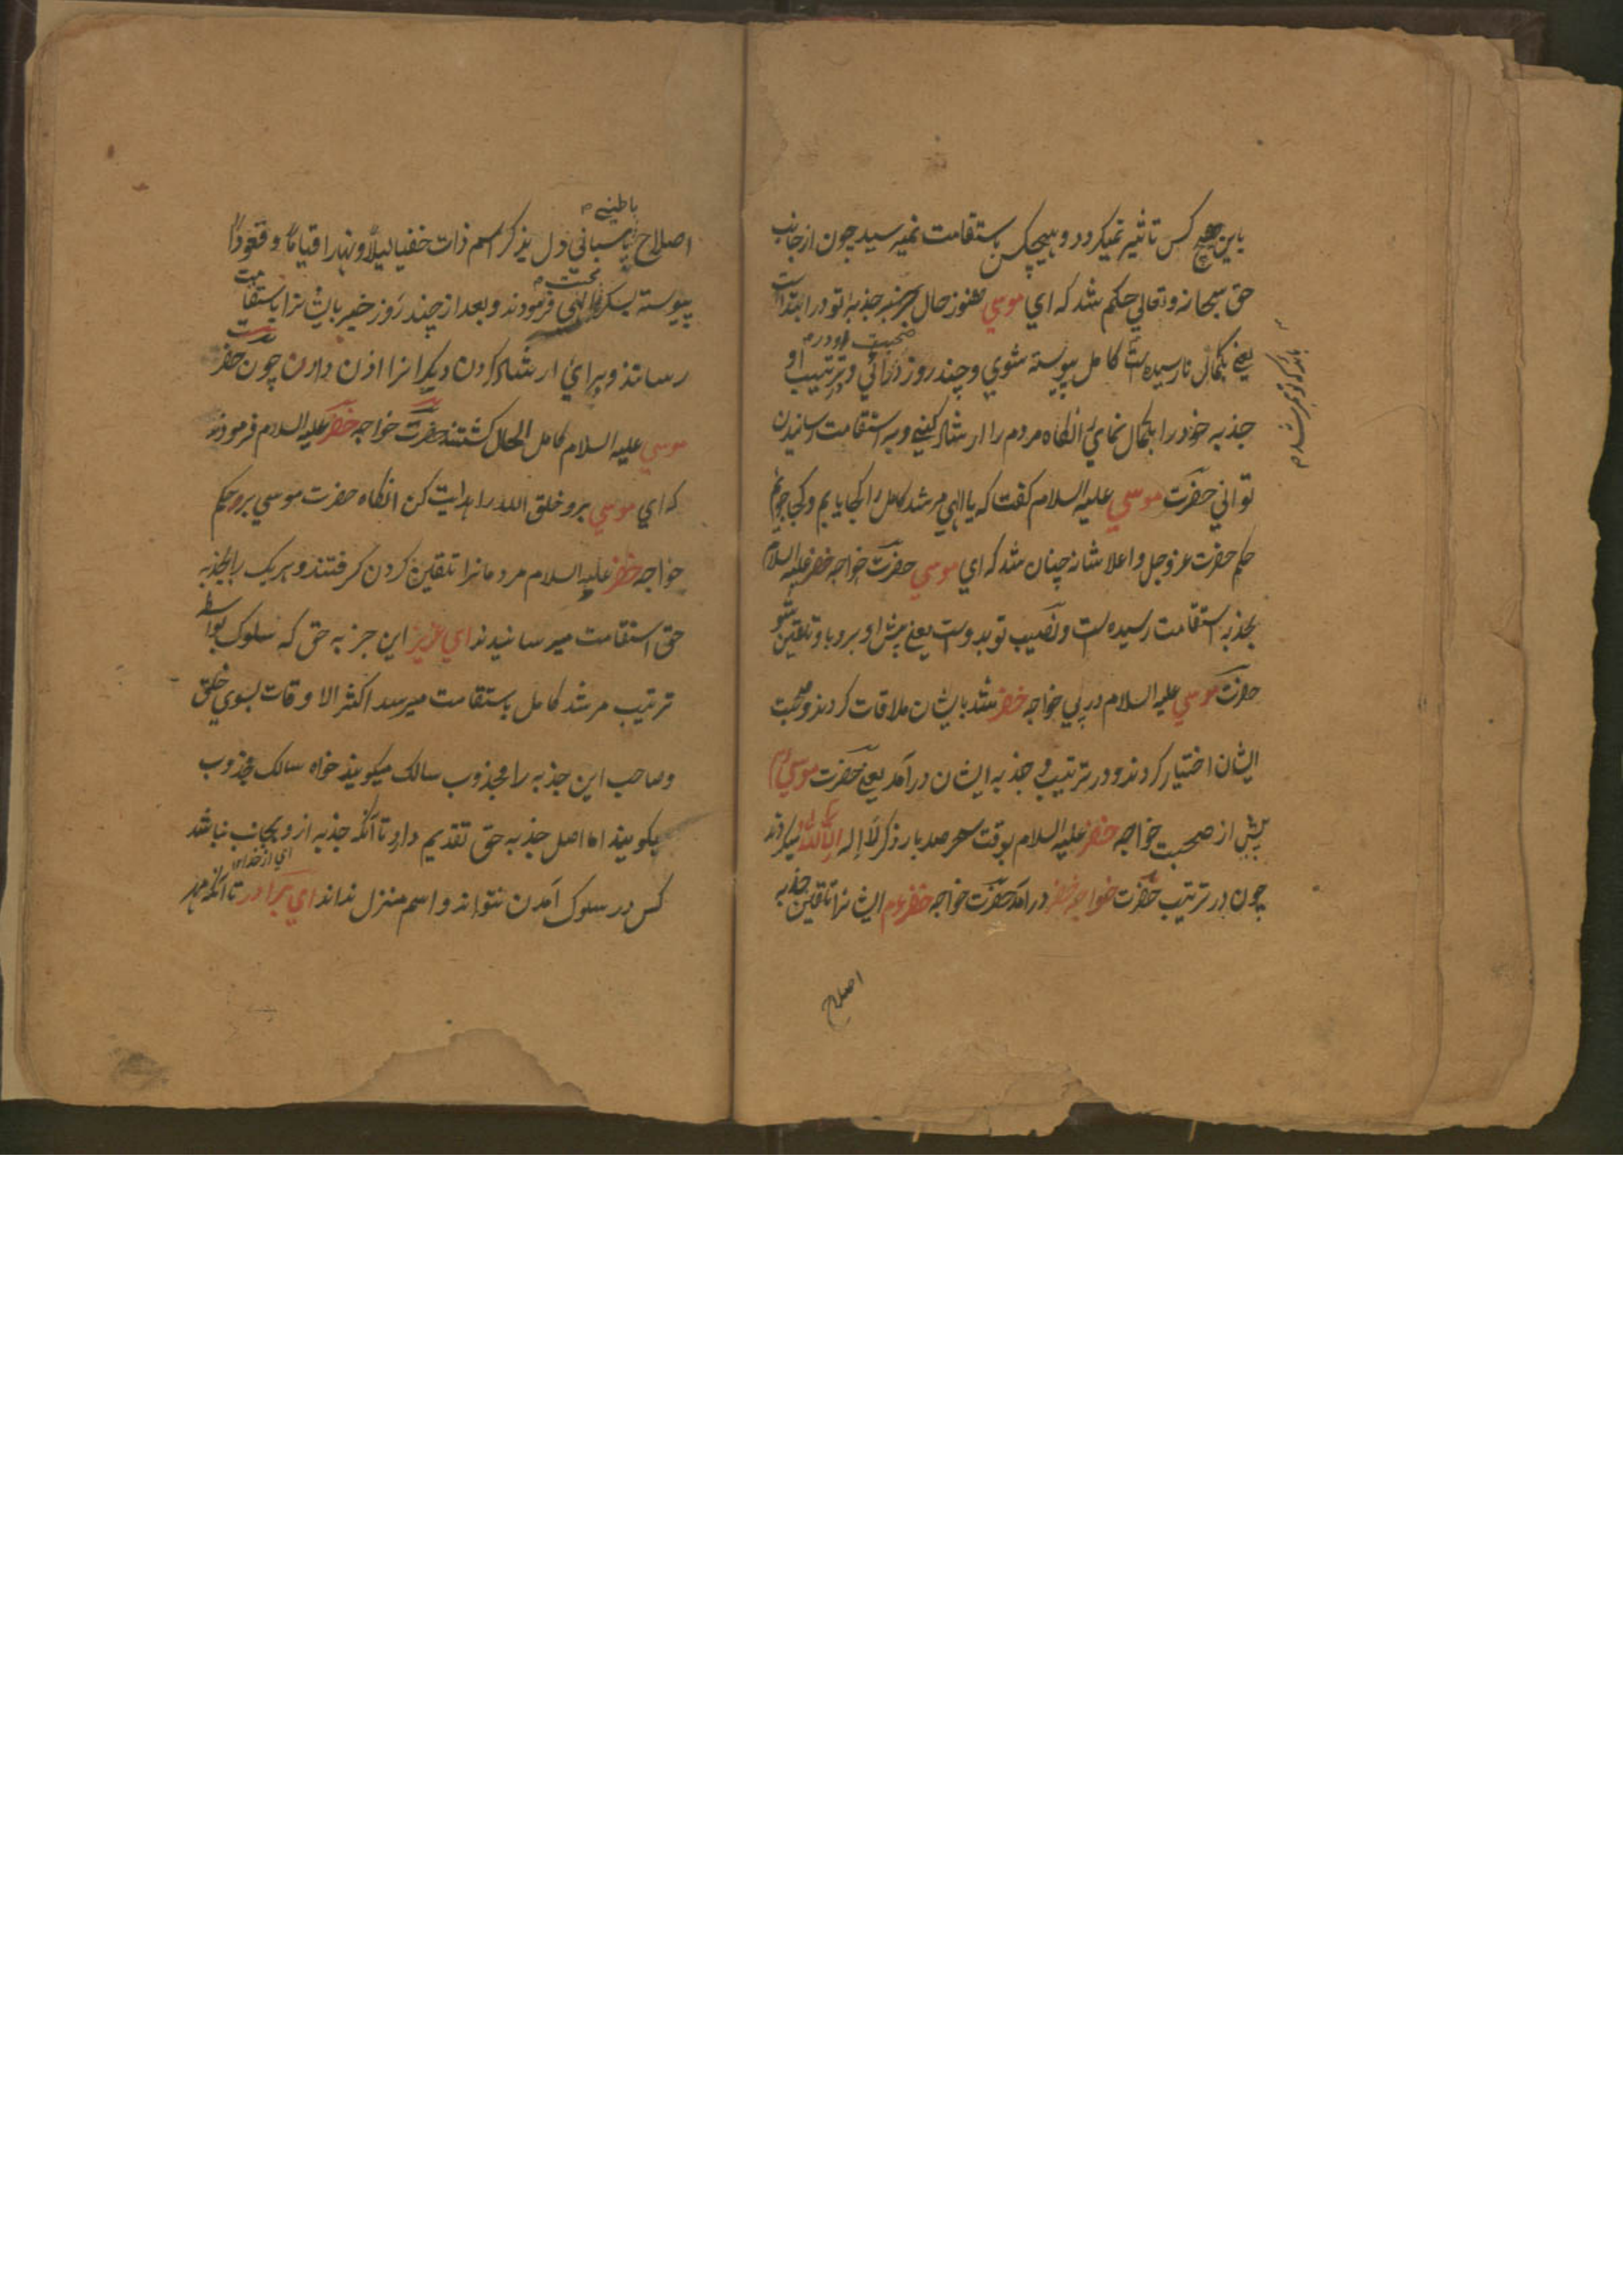 باین هیچ کس تاثیر نمیکردد و هیچکس باستقامت نمیرسید چون از جانب
حق سبحانه وتعالی حکم شد که ای موسی هنوز حال جذبه تو در ابتداست
یعنی بکمال نارسیده است کامل پیوسته شوی و چند روز در صحبت او درائی و در ترتیب او
جذبه خود را بکمال نمای انکاه مردم را ارشاد کنی و به استقامت رسانیدن
توانی حضرت موسی علیه السلام کفت که یا الهی مرشد کامل را کجا یابم و کجا جویم
حکم حضرت عز وجل و اعلا شانه چنان شد که ای موسی حضرت خواجه خضر علیه السلام
بجذبه استقامت رسیده است و نصیب تو بدوست یعنی پیش او برو باو تلقین شو
حضرت موسی علیه السلام در پی خواجه خضر شد بایشان ملاقات کردند و صحبت
ایشان اختیار کردند و در ترتیب و جذبه ایشان درآمد یعنی حضرت موسی
پیش از صحبت خواجه خضر علیه السلام بوقت سحر صد بار ذکر لا إله إلا الله میکردند
چون در ترتیب حضرت خواجه خضر درآمد حضرت خواجه خضر ایشانرا تلقین جذبه
اصلاح
باطنی
اصلاح پاسبانی دل بذکر اسم ذات خفیا لیلا و نهارا قیاما و قعودا
پیوسته بسکر محبت الهی فرمودند و بعد از چند روز خیر بایشانرا باستقامت
رسانند و برای ارشاد کردن دیکرانرا اذن دادن چون حضرت
موسی علیه السلام کامل الحال کشتند حضرت خواجه خضر علیه السلام فرمودند
که ای موسی برو خلق الله را هدایت کن انکاه حضرت موسی بر حکم
خواجه خضر علیه السلام مردمانرا تلقین کردن کرفتند و هریک را بجذبه
حق استقامت میرسانیدند ای عزیز این جزبه حق که سلوک بواسطه
ترتیب مرشد کامل باستقامت میرسد اکثر الاوقات بسوی خلق
و صاحب این جذبه را مجذوب سالک میکویند خواه سالک مجذوب
بکویند اما اصل جذبه حق تقدیم دارد تا آنکه جذبه از و بجانب نباشد
ای از خدای
کس در سلوک آمدن نتواند و اسم منزل نداند ای برادر تا آنکه